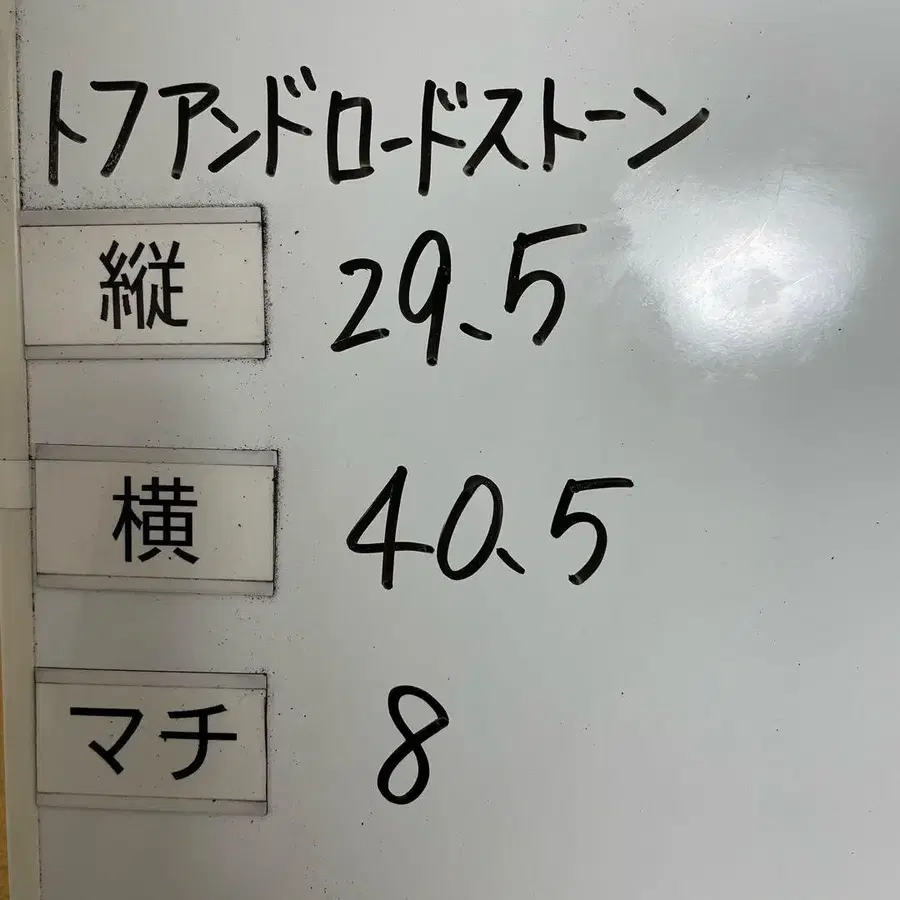 トフアンドロードストーン
縦 29.5
横 40.5
マチ 8